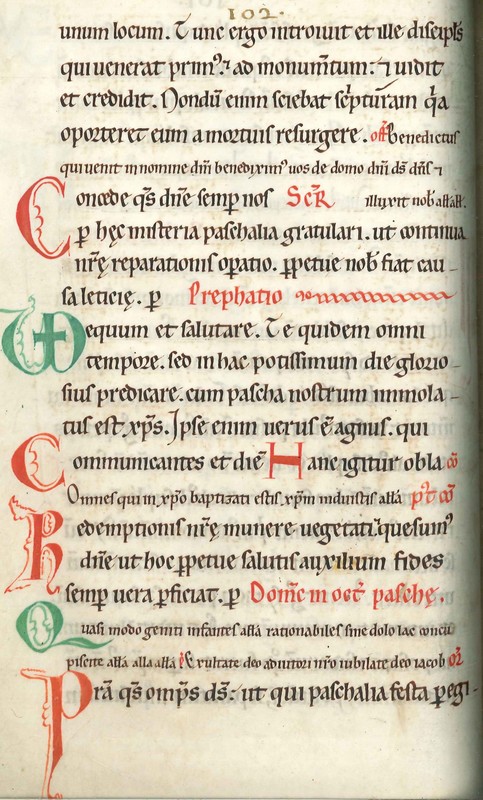 102.
unum locum. Tunc ergo introivit et ille discipls̄
qui venerat prim᷒: ad monum̄tum: ⁊ vidit
et credidit. Nondū enim sciebat sc̄pturam q̄a
oporteret eum a mortuis resurgere. off̄ Benedictus
qui venit in nomine dn̄i benedixim᷒ vos de domo dn̄i ds̄ dn̄s ⁊
Concede qs̄ dn̄e semp̄ nos Sec̄R illuxit nob̄ aƚƚa aƚƚa.
p̄ hęc misteria paschalia gratulari. ut continua
nr̄ę reparationis op̄atio. p̄petue nob̄ fiat cau-
sa leticię. p̄ Prephatio
VDequum et salutare. Te quidem omni
tempore. sed in hac potissimum die glorio-
sius predicare. cum pascha nostrum immola-
tus est xp̄s. Ipse enim verus ē agnus. qui
Communicantes et diē Hanc igitur obla cō
Omnes qui in xp̄o baptizati estis xp̄m induistis aƚƚa p̄t cō
Redemptionis nr̄ę munere vegetati. quesum᷒
dn̄e ut hoc p̄petue salutis auxilium fides
semp̄ vera p̄ficiat. p̄ Domīc in oct̄ paschę.
Quasi modo geniti infantes aƚƚa rationabiles sine dolo lac concu
piscite aƚƚa aƚƚa aƚƚa p̄s Exultate deo adiutori nr̄o iubilate deo iacob or̄
Prā qs̄ omp̄s ds̄: ut qui paschalia festa p̄egi-